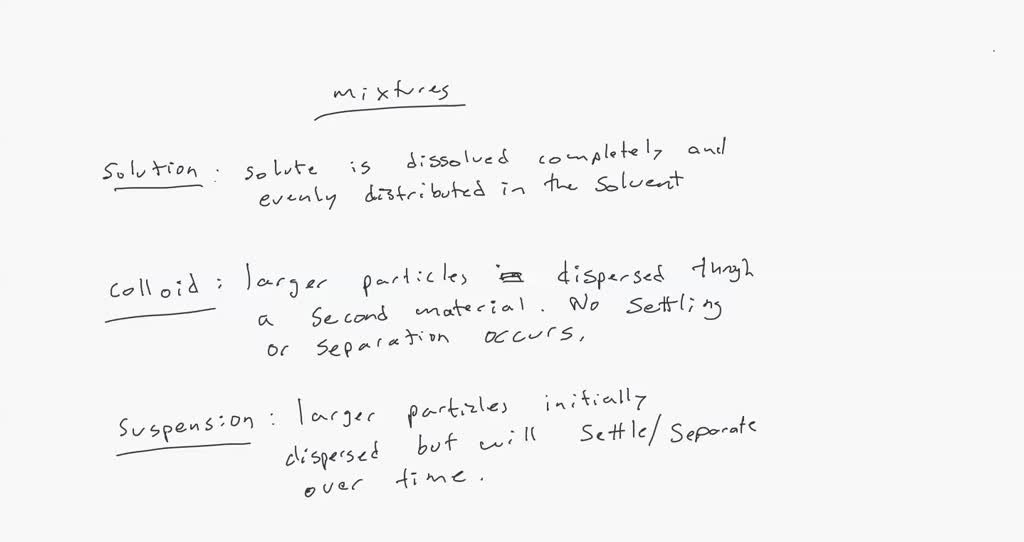 mixtures
Solution: solute is dissolved completely and
evenly distributed in the solvent
Colloid: larger particles dispersed through
a second material. No settling
or separation occurs.
Suspension: larger particles initially
dispersed but will settle/separate
over time.